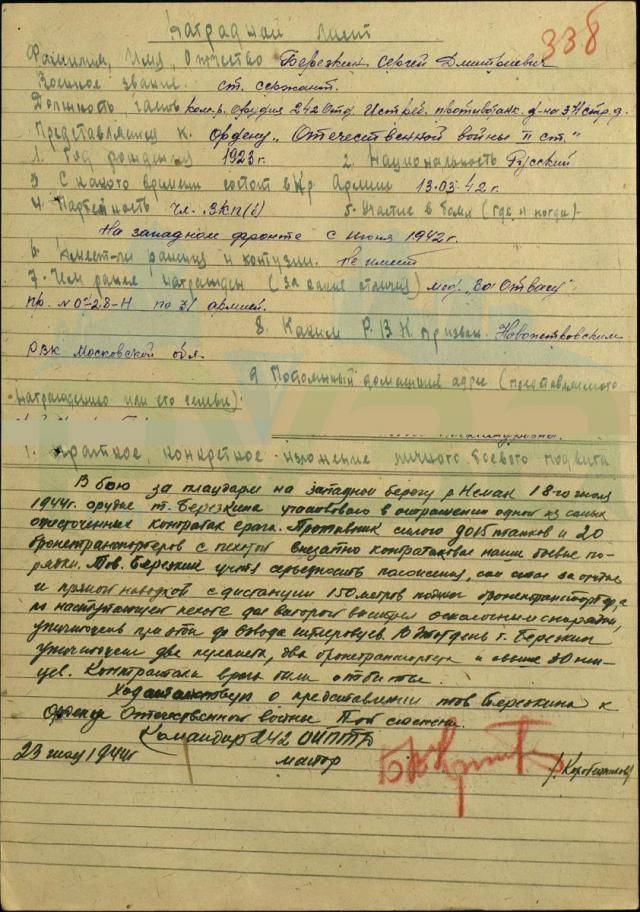 Наградной лист
338
Фамилия, Имя, Отчество Березкин Сергей Дмитриевич
Военное звание ст. сержант.
Должность, часть ком-р орудия 242 Отд. Истреб. противотанк. д-на 3 И стр. д.
Представляется к Ордену „Отечественной войны II ст."
1. Год рождения 1923 г. 2. Национальность Русский
3 С какого времени состоит в Кр Армии 13.03.42 г.
4 Партейность чл. ВКП(б) 5. Участие в боях (где и когда)
На западном фронте с июня 1942 г.
6. Имеет-ли ранения и контузии. Не имеет
7. Чем ранее награжден (за какие отличия) мед. „За Отвагу"
пр. №02-8-Н по 31 армией.
8. Каким Р.В.К призван. Новопетровским
РВК Московской обл.
9 Постоянный домашний адрес (представляемого
к награждению или его семьи):
1. Краткое, конкретное изложение личного боевого подвига
В бою за плацдарм на западном берегу р Неман 18-го июля
1944г. орудие т. Березкина участвовало в отражении одной из самых
ожесточенных контратак врага. Противник силою до 15 танков и 20
бронетранспортеров с пехотой внезапно контратаковал наши боевые по-
рядки. Тов. Березкин учтя серьезность положения, сам стал за орудие
и прямой наводкой с дистанции 150 метров бронетранспортер, а
по наступающей пехоте дал выстрел осколочным снарядом,
уничтожив при этом до взвода гитлеровцев. В этот день т. Березкин
уничтожено два пулемета, два бронетранспортера и свыше 30 нем-
цев. Контратаки врага были отбиты.
Ходатайствую о представлении тов Березкина к
Ордену Отечественной войны II-ой степени.
Командир 242 ОИПТД
23 июля 1944г майор /Коробейников/